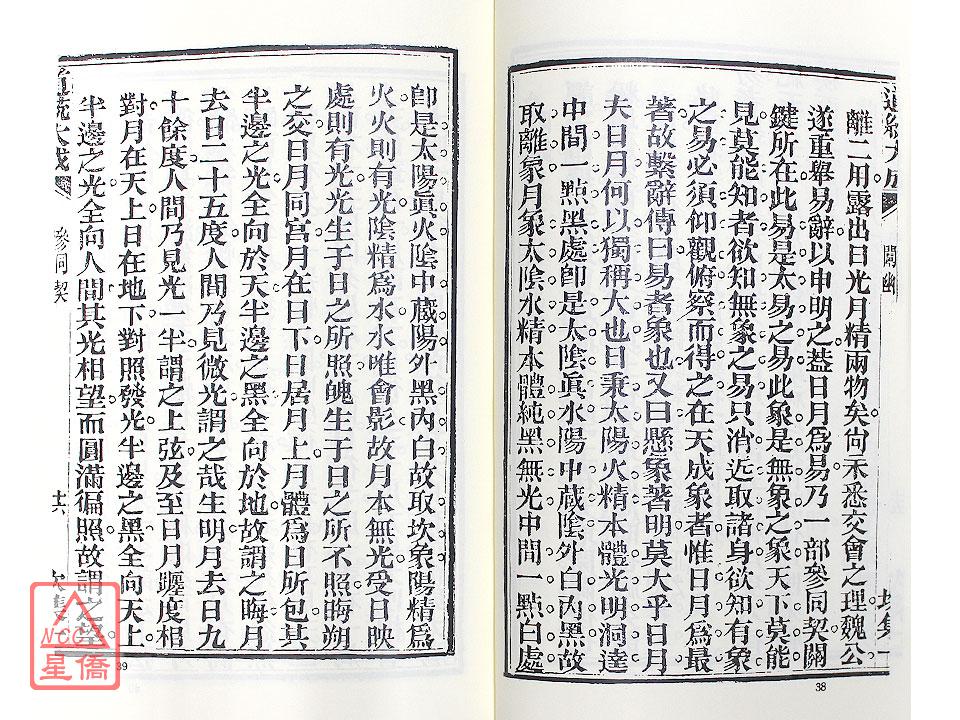 離二用露出日光月精兩物矣尙未悉交會之理魏公
遂重舉易辭以申明之葢日月爲易乃一部參同契關
鍵所在此易是太易之易此象是無象之象天下莫能
見莫能知者欲知無象之易只消近取諸身欲知有象
之易必須仰觀俯察而得之在天成象者惟日月爲最
著故繫辭傳曰易者象也又曰懸象著明莫大乎日月
夫日月何以獨稱大也日秉太陽火精本體光明洞達
中間一點黑處卽是太陰眞水陽中藏陰外白內黑故
取離象月象太陰水精本體純黑無光中間一點白處
闡幽
38
卽是太陽眞火陰中藏陽外黑內白故取坎象陽精爲
火火則有光陰精爲水水唯會影故月本無光受日映
處則有光光生于日之所照魄生于日之所不照晦朔
之交日月同宮月在日下日居月上月體爲日所包其
半邊之光全向於天半邊之黑全向於地故謂之晦月
去日二十五度人間乃見微光謂之哉生明月去日九
十餘度人間乃見光一半謂之上弦及至日月躔度相
對月在天上日在地下對照發光半邊之黑全向天上
半邊之光全向人間其光相望而圓滿徧照故謂之望
道統大成
參同契
39
NCC
星僑